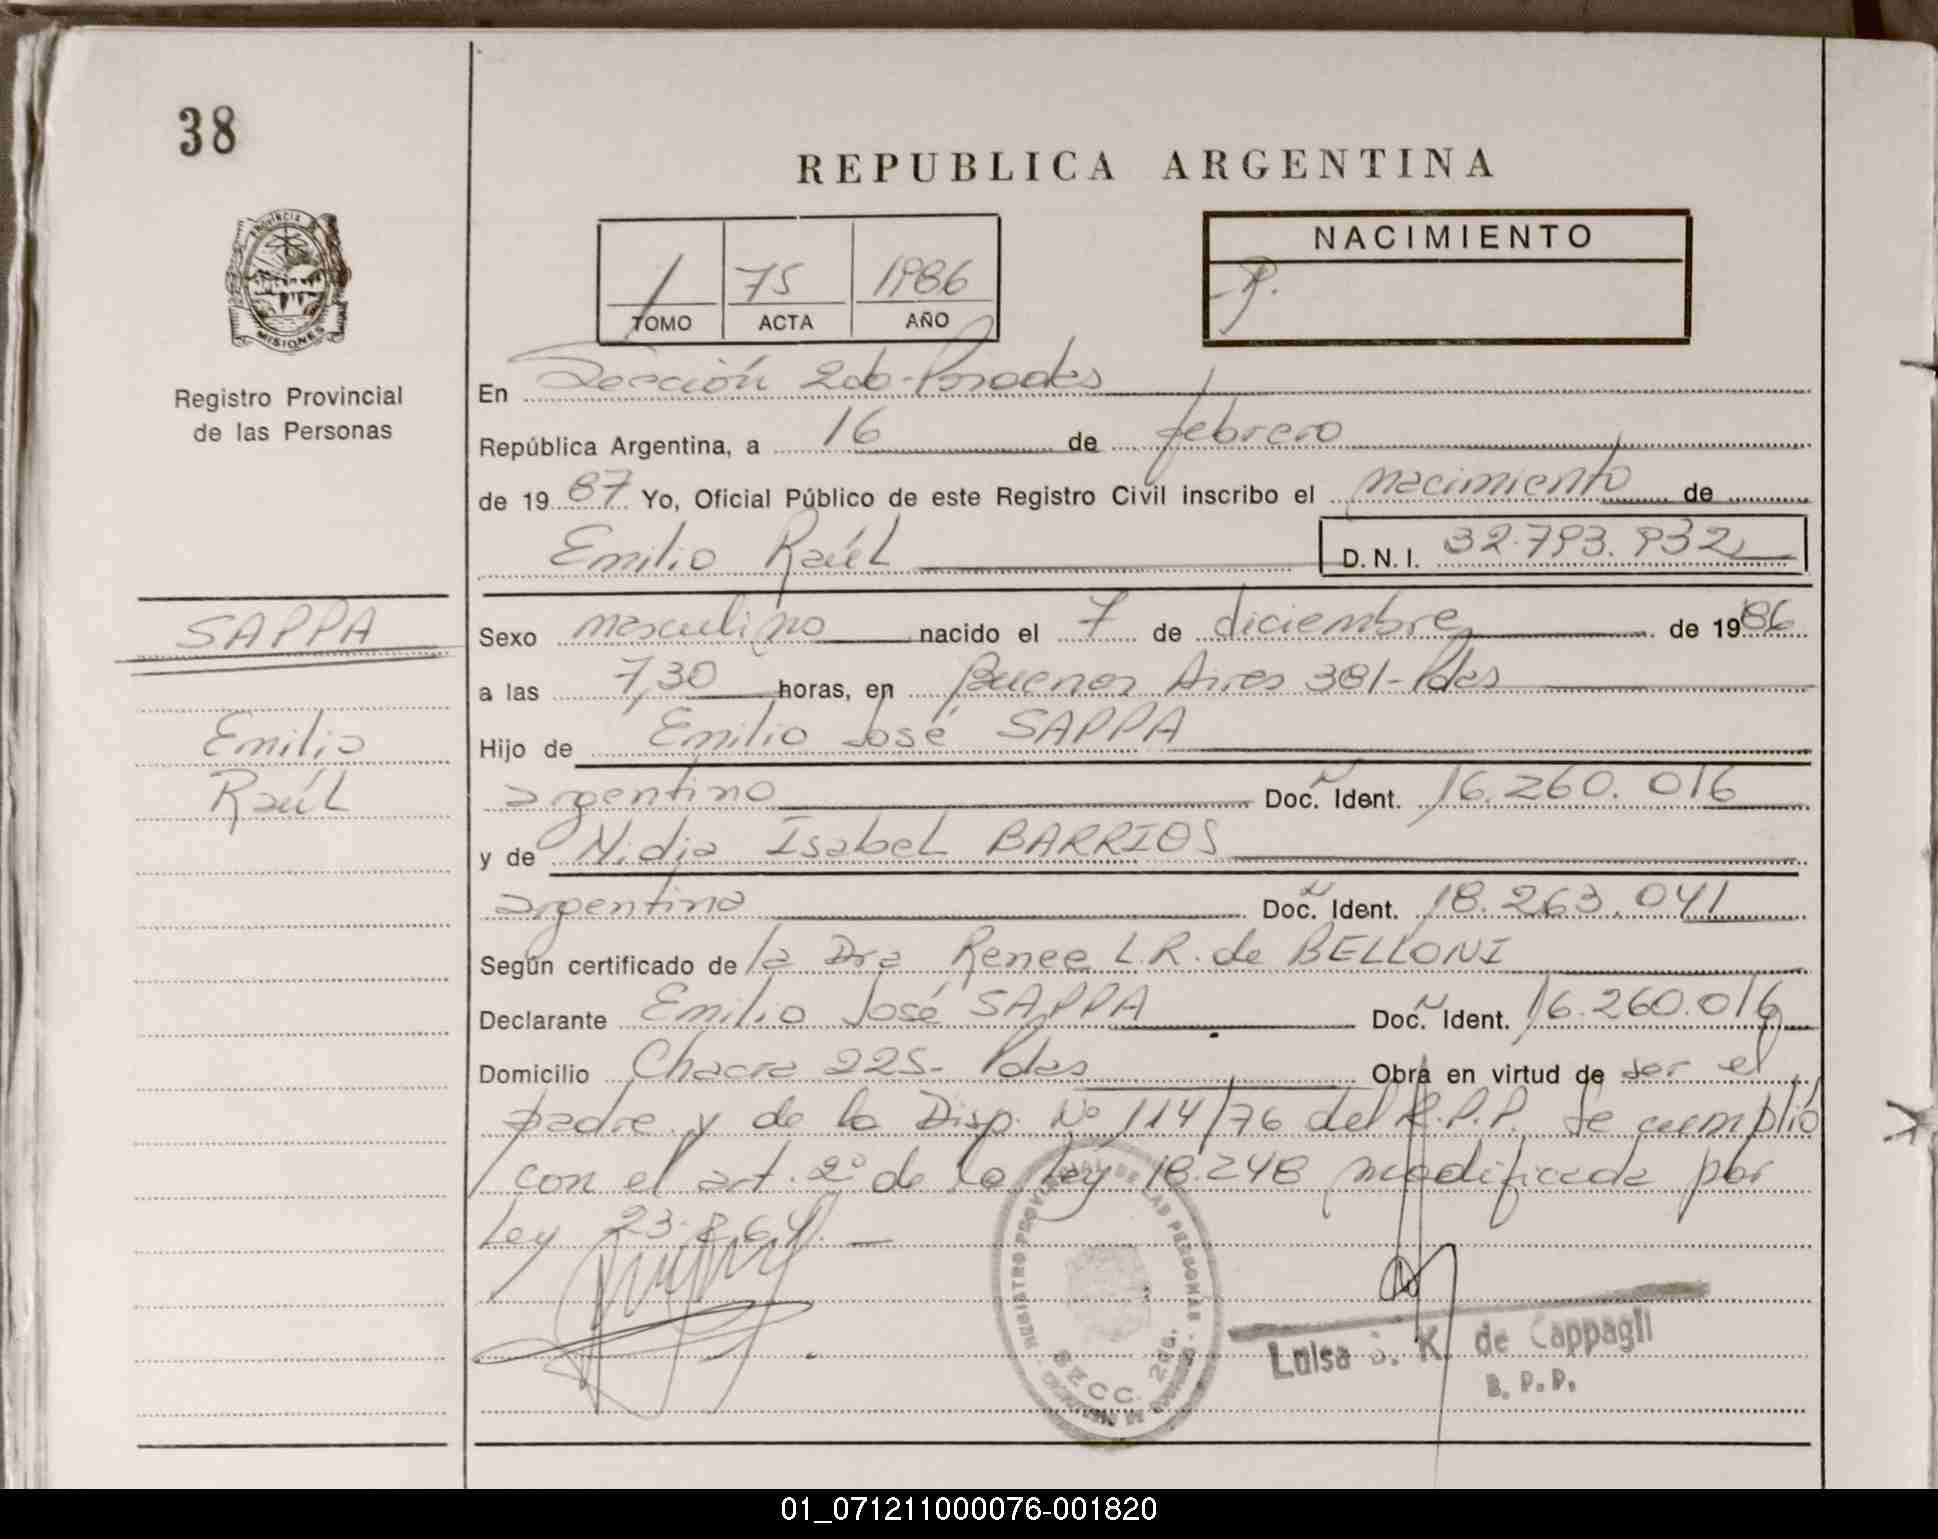 38
REPUBLICA ARGENTINA
Provincia
MISIONES
Registro Provincial
de las Personas
1 75 1986
TOMO ACTA AÑO
NACIMIENTO
En Sección 2da-Posadas
República Argentina, a 16 de febrero
de 1987 Yo, Oficial Público de este Registro Civil inscribo el nacimiento de
Emilio Raúl D.N.I. 32.793.932
SAPPA
Emilio
Raúl
Sexo masculino nacido el 7 de diciembre de 1986
a las 7,30 horas, en Buenos Aires 381-Pdas
Hijo de Emilio José SAPPA
argentino Doc. Ident. 16.260.016
y de Nidia Isabel BARRIOS
argentina Doc. Ident. 18.263.041
Según certificado de la Dra Renee L.R. de BELLONI
Declarante Emilio José SAPPA Doc. Ident. 16.260.016
Domicilio Chacra 225- Pdas Obra en virtud de ser el
padre y de la Disp. Nº 114/76 del R.P.P. Se cumplió
con el art. 2º de la Ley 18.248 modificada por
Ley 23.264.-
SECC. 2da.
Luisa S. K. de Cappagli
01_071211000076-001820